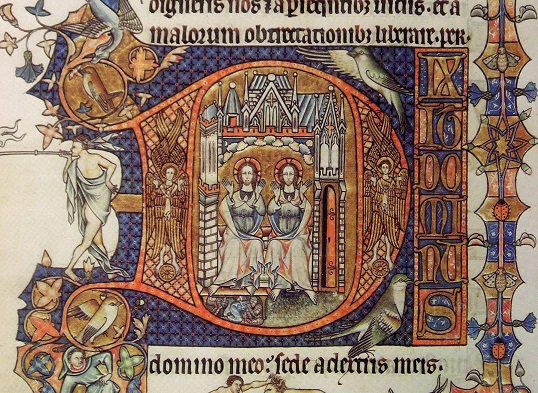 digneris nos ⁊ a p̄sentibꝫ uiciis. et a
malorum obtrectationibꝫ liberare. per.
D
IX
IT
DO
MI
NU
S
domino meo: sede a dextris meis.